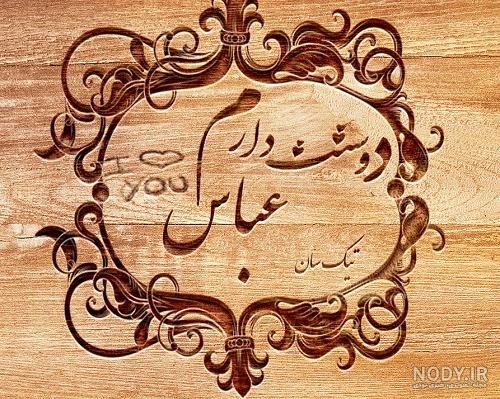 دوستت دارم
عباس
I ♡
YOU
تیک سان
NODY.IR